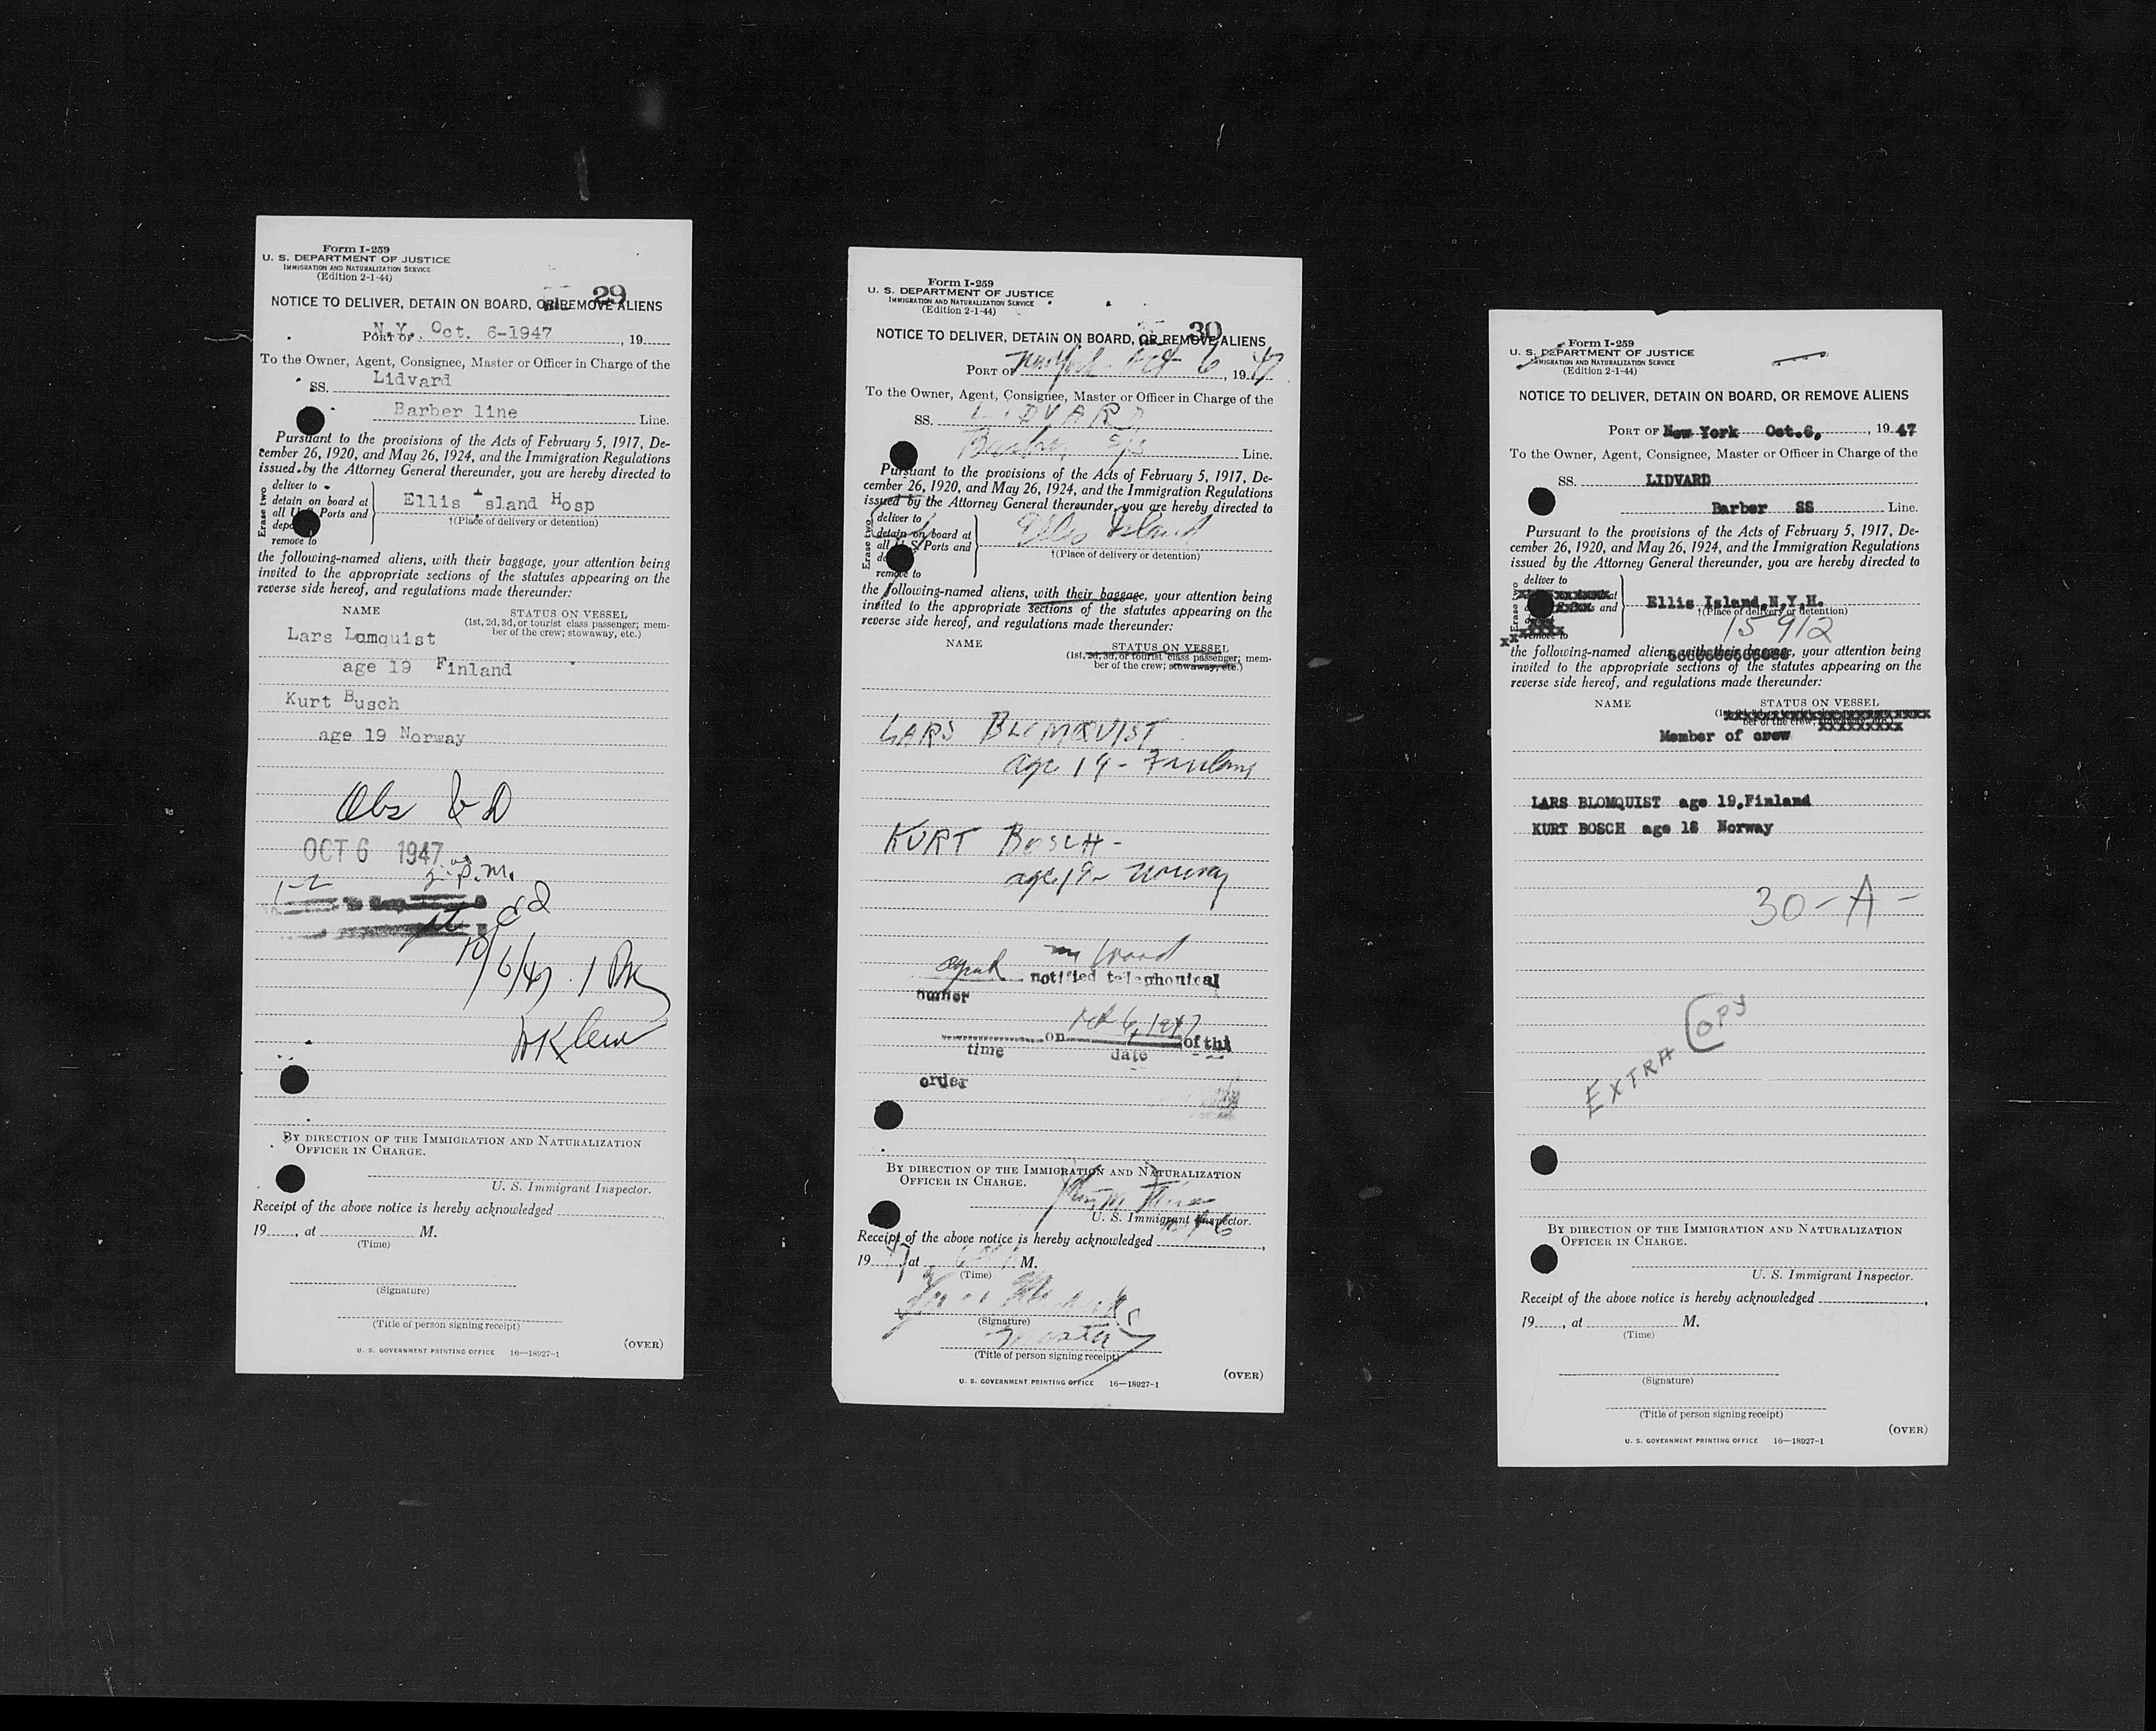 Form I-259
U. S. DEPARTMENT OF JUSTICE
IMMIGRATION AND NATURALIZATION SERVICE
(Edition 2-1-44)
29
NOTICE TO DELIVER, DETAIN ON BOARD, OR REMOVE ALIENS
PORT OF N.Y. Oct. 6-1947, 19
To the Owner, Agent, Consignee, Master or Officer in Charge of the
SS. Lidvard
Barber line Line.
Pursuant to the provisions of the Acts of February 5, 1917, De-
cember 26, 1920, and May 26, 1924, and the Immigration Regulations
issued by the Attorney General thereunder, you are hereby directed to
Erase two
deliver to
detain on board at
all U. S. Ports and
remove to
Ellis Island Hosp
†(Place of delivery or detention)
the following-named aliens, with their baggage, your attention being
invited to the appropriate sections of the statutes appearing on the
reverse side hereof, and regulations made thereunder:
NAME STATUS ON VESSEL
(1st, 2d, 3d, or tourist class passenger; mem-
ber of the crew; stowaway, etc.)
Lars Lomquist
age 19 Finland
Kurt Busch
age 19 Norway
Obs & D
OCT 6 1947
p.m.
10/6/47 1 PM
BY DIRECTION OF THE IMMIGRATION AND NATURALIZATION
OFFICER IN CHARGE.
U. S. Immigrant Inspector.
Receipt of the above notice is hereby acknowledged
19, at M.
(Time)
(Signature)
(Title of person signing receipt)
(OVER)
U. S. GOVERNMENT PRINTING OFFICE 16—18927-1
Form I-259
U. S. DEPARTMENT OF JUSTICE
IMMIGRATION AND NATURALIZATION SERVICE
(Edition 2-1-44)
30
NOTICE TO DELIVER, DETAIN ON BOARD, OR REMOVE ALIENS
PORT OF New York Oct 6, 1947
To the Owner, Agent, Consignee, Master or Officer in Charge of the
SS. LIDVARD
Barber S/S Line.
Pursuant to the provisions of the Acts of February 5, 1917, De-
cember 26, 1920, and May 26, 1924, and the Immigration Regulations
issued by the Attorney General thereunder, you are hereby directed to
Erase two
deliver to
detain on board at
all U. S. Ports and
remove to
Ellis Island
†(Place of delivery or detention)
the following-named aliens, with their baggage, your attention being
invited to the appropriate sections of the statutes appearing on the
reverse side hereof, and regulations made thereunder:
NAME STATUS ON VESSEL
(1st, 2d, 3d, or tourist class passenger; mem-
ber of the crew; stowaway, etc.)
LARS BLOMQVIST
age 19 - Finland
KURT BOSCH -
age 19 - Norway
agent notified telephonical
owner
on Oct 6, 1947 of thi
time date
order
BY DIRECTION OF THE IMMIGRATION AND NATURALIZATION
OFFICER IN CHARGE.
U. S. Immigrant Inspector.
Receipt of the above notice is hereby acknowledged Oct 6,
1947 at M.
(Time)
(Signature)
Master
(Title of person signing receipt)
(OVER)
U. S. GOVERNMENT PRINTING OFFICE 16—18927-1
Form I-259
U. S. DEPARTMENT OF JUSTICE
IMMIGRATION AND NATURALIZATION SERVICE
(Edition 2-1-44)
NOTICE TO DELIVER, DETAIN ON BOARD, OR REMOVE ALIENS
PORT OF New York Oct.6, , 1947
To the Owner, Agent, Consignee, Master or Officer in Charge of the
SS. LIDVARD
Barber SS Line.
Pursuant to the provisions of the Acts of February 5, 1917, De-
cember 26, 1920, and May 26, 1924, and the Immigration Regulations
issued by the Attorney General thereunder, you are hereby directed to
Erase two
deliver to
at
and
remove to
Ellis Island,N.Y.H.
†(Place of delivery or detention)
15912
the following-named aliens, with their baggage, your attention being
invited to the appropriate sections of the statutes appearing on the
reverse side hereof, and regulations made thereunder:
NAME STATUS ON VESSEL
ber of the crew;
Member of crew
LARS BLOMQUIST age 19,Finland
KURT BOSCH age 18 Norway
30-A-
EXTRA COPY
BY DIRECTION OF THE IMMIGRATION AND NATURALIZATION
OFFICER IN CHARGE.
U. S. Immigrant Inspector.
Receipt of the above notice is hereby acknowledged ,
19, at M.
(Time)
(Signature)
(Title of person signing receipt)
(OVER)
U. S. GOVERNMENT PRINTING OFFICE 16—18927-1